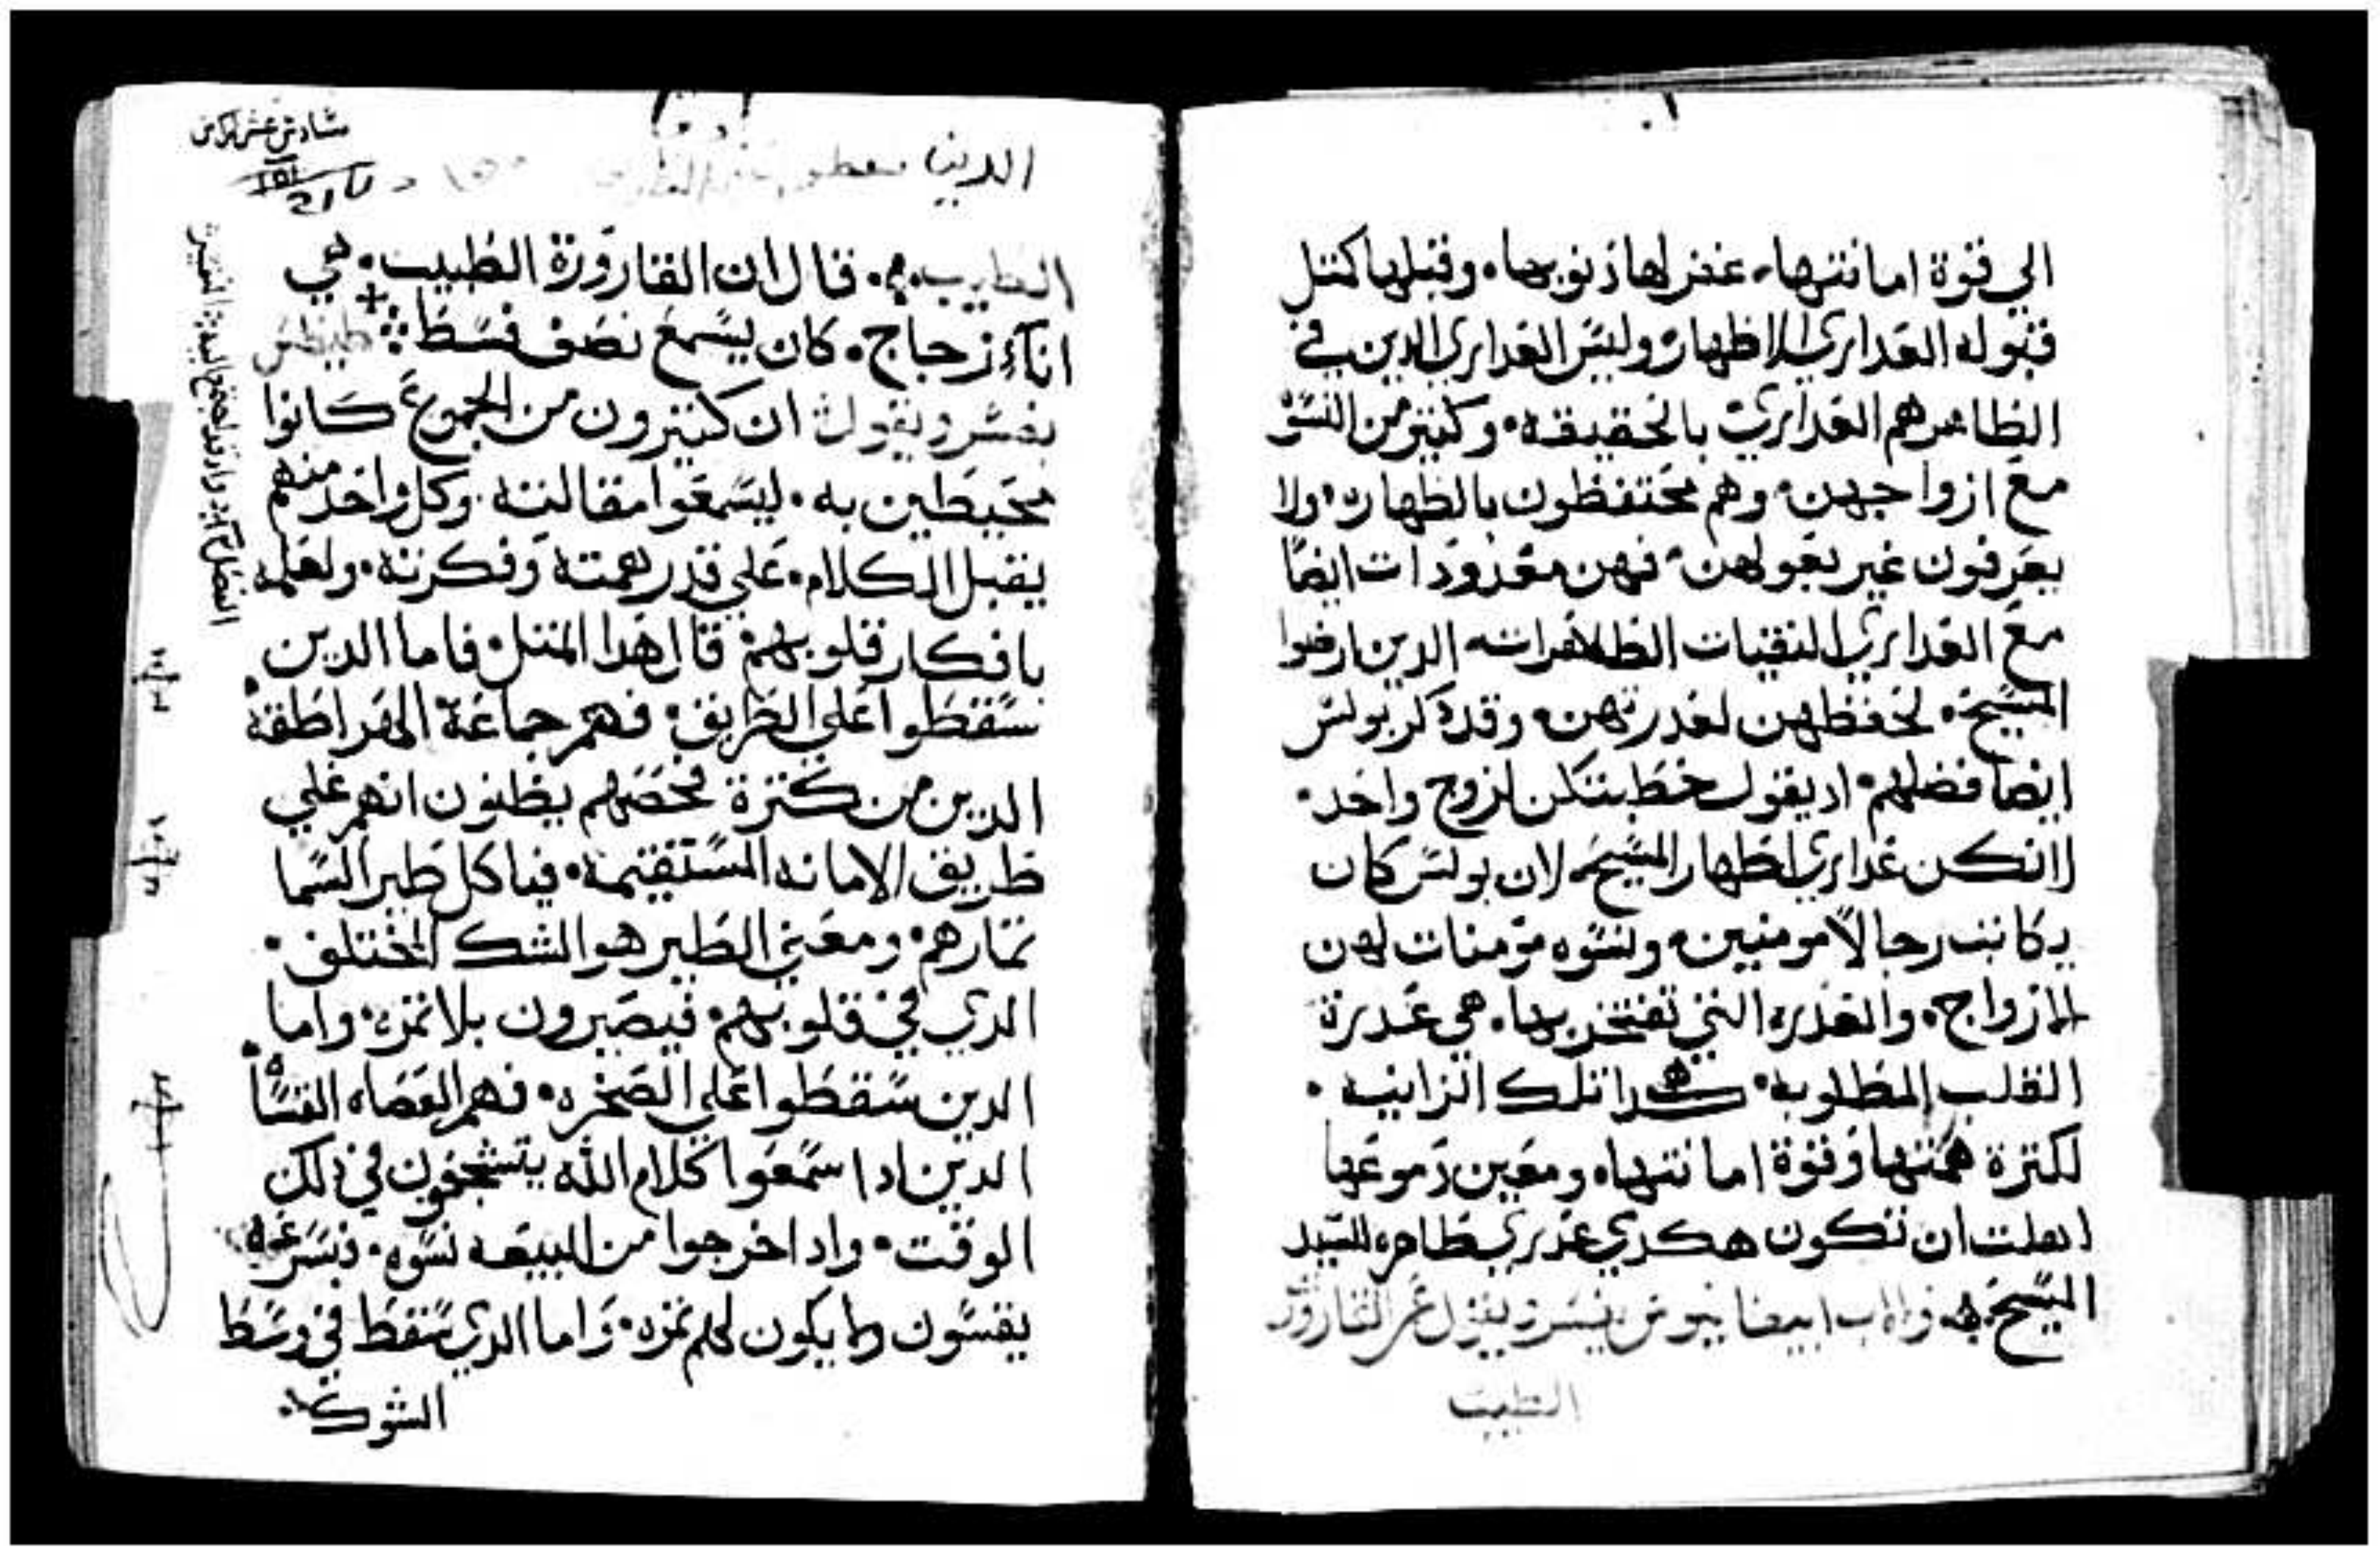 الي قوة امانتها. غفر لها ذنوبها. وقبلها كمثل
قبوله العداري الاطهار وليس العداري الدين في
الظاهر هم العداري بالحقيقه. وكثير من النسو
مع ازواجهن. وهم محتفظون بالطهاره. ولا
يعرفون غير بعولهن. فهن معدودات ايضا
مع العداري النقيات الطاهرات الدين ارضوا
المسيح. لحفظهن لعدرتهن. وقد دكر بولس
ايضا فضلهم. اد يقول خطبتكن لزوج واحد.
لانكن عداري اطهار المسيح. لان بولس كان
يكاتب رجالا مومنين. ونسوه مومنات لهن
الازواج. والعدره التي تفتخر بها. هي عدرة
القلب المطلوبه. هكدا تلك الزانيه.
لكثرة همتها وقوة امانتها. ومعين دموعها
اهلت ان تكون هكدي عدري طاهره للسيد
المسيح. والاب ابيفانيوس يفسر ويقول عن القارورة
الطيب
سادس عشر كراس
الدين
الطيب. قال ان القارورة الطيب. هي
اناء زجاج. كان يسع نصف قسط. طيطس
يفسر ويقول ان كثيرون من الجموع كانوا
محيطين به. ليسمعوا مقالته. وكل واحد منهم
يقبل الكلام. علي قدر همته وفكرته. ولعلمه
بافكار قلوبهم قال هدا المثل. فاما الدين
سقطوا علي الطريق. فهم جماعة الهراطقه
الدين من كثرة فحصهم يظنون انهم علي
طريق الامانه المستقيمه. فياكل طير السما
تمارهم. ومعني الطير هو الشك المختلف.
الدي في قلوبهم. فيصيرون بلا تمره. واما
الدين سقطوا علي الصخره. فهم العصاه القساة
الدين ادا سمعوا كلام الله يتشجعون في دلك
الوقت. واد اخرجوا من البيعه نسوه. فبسرعه
يقسون ولا يكون لهم تمره. واما الدي سقط في وسط
الشوك